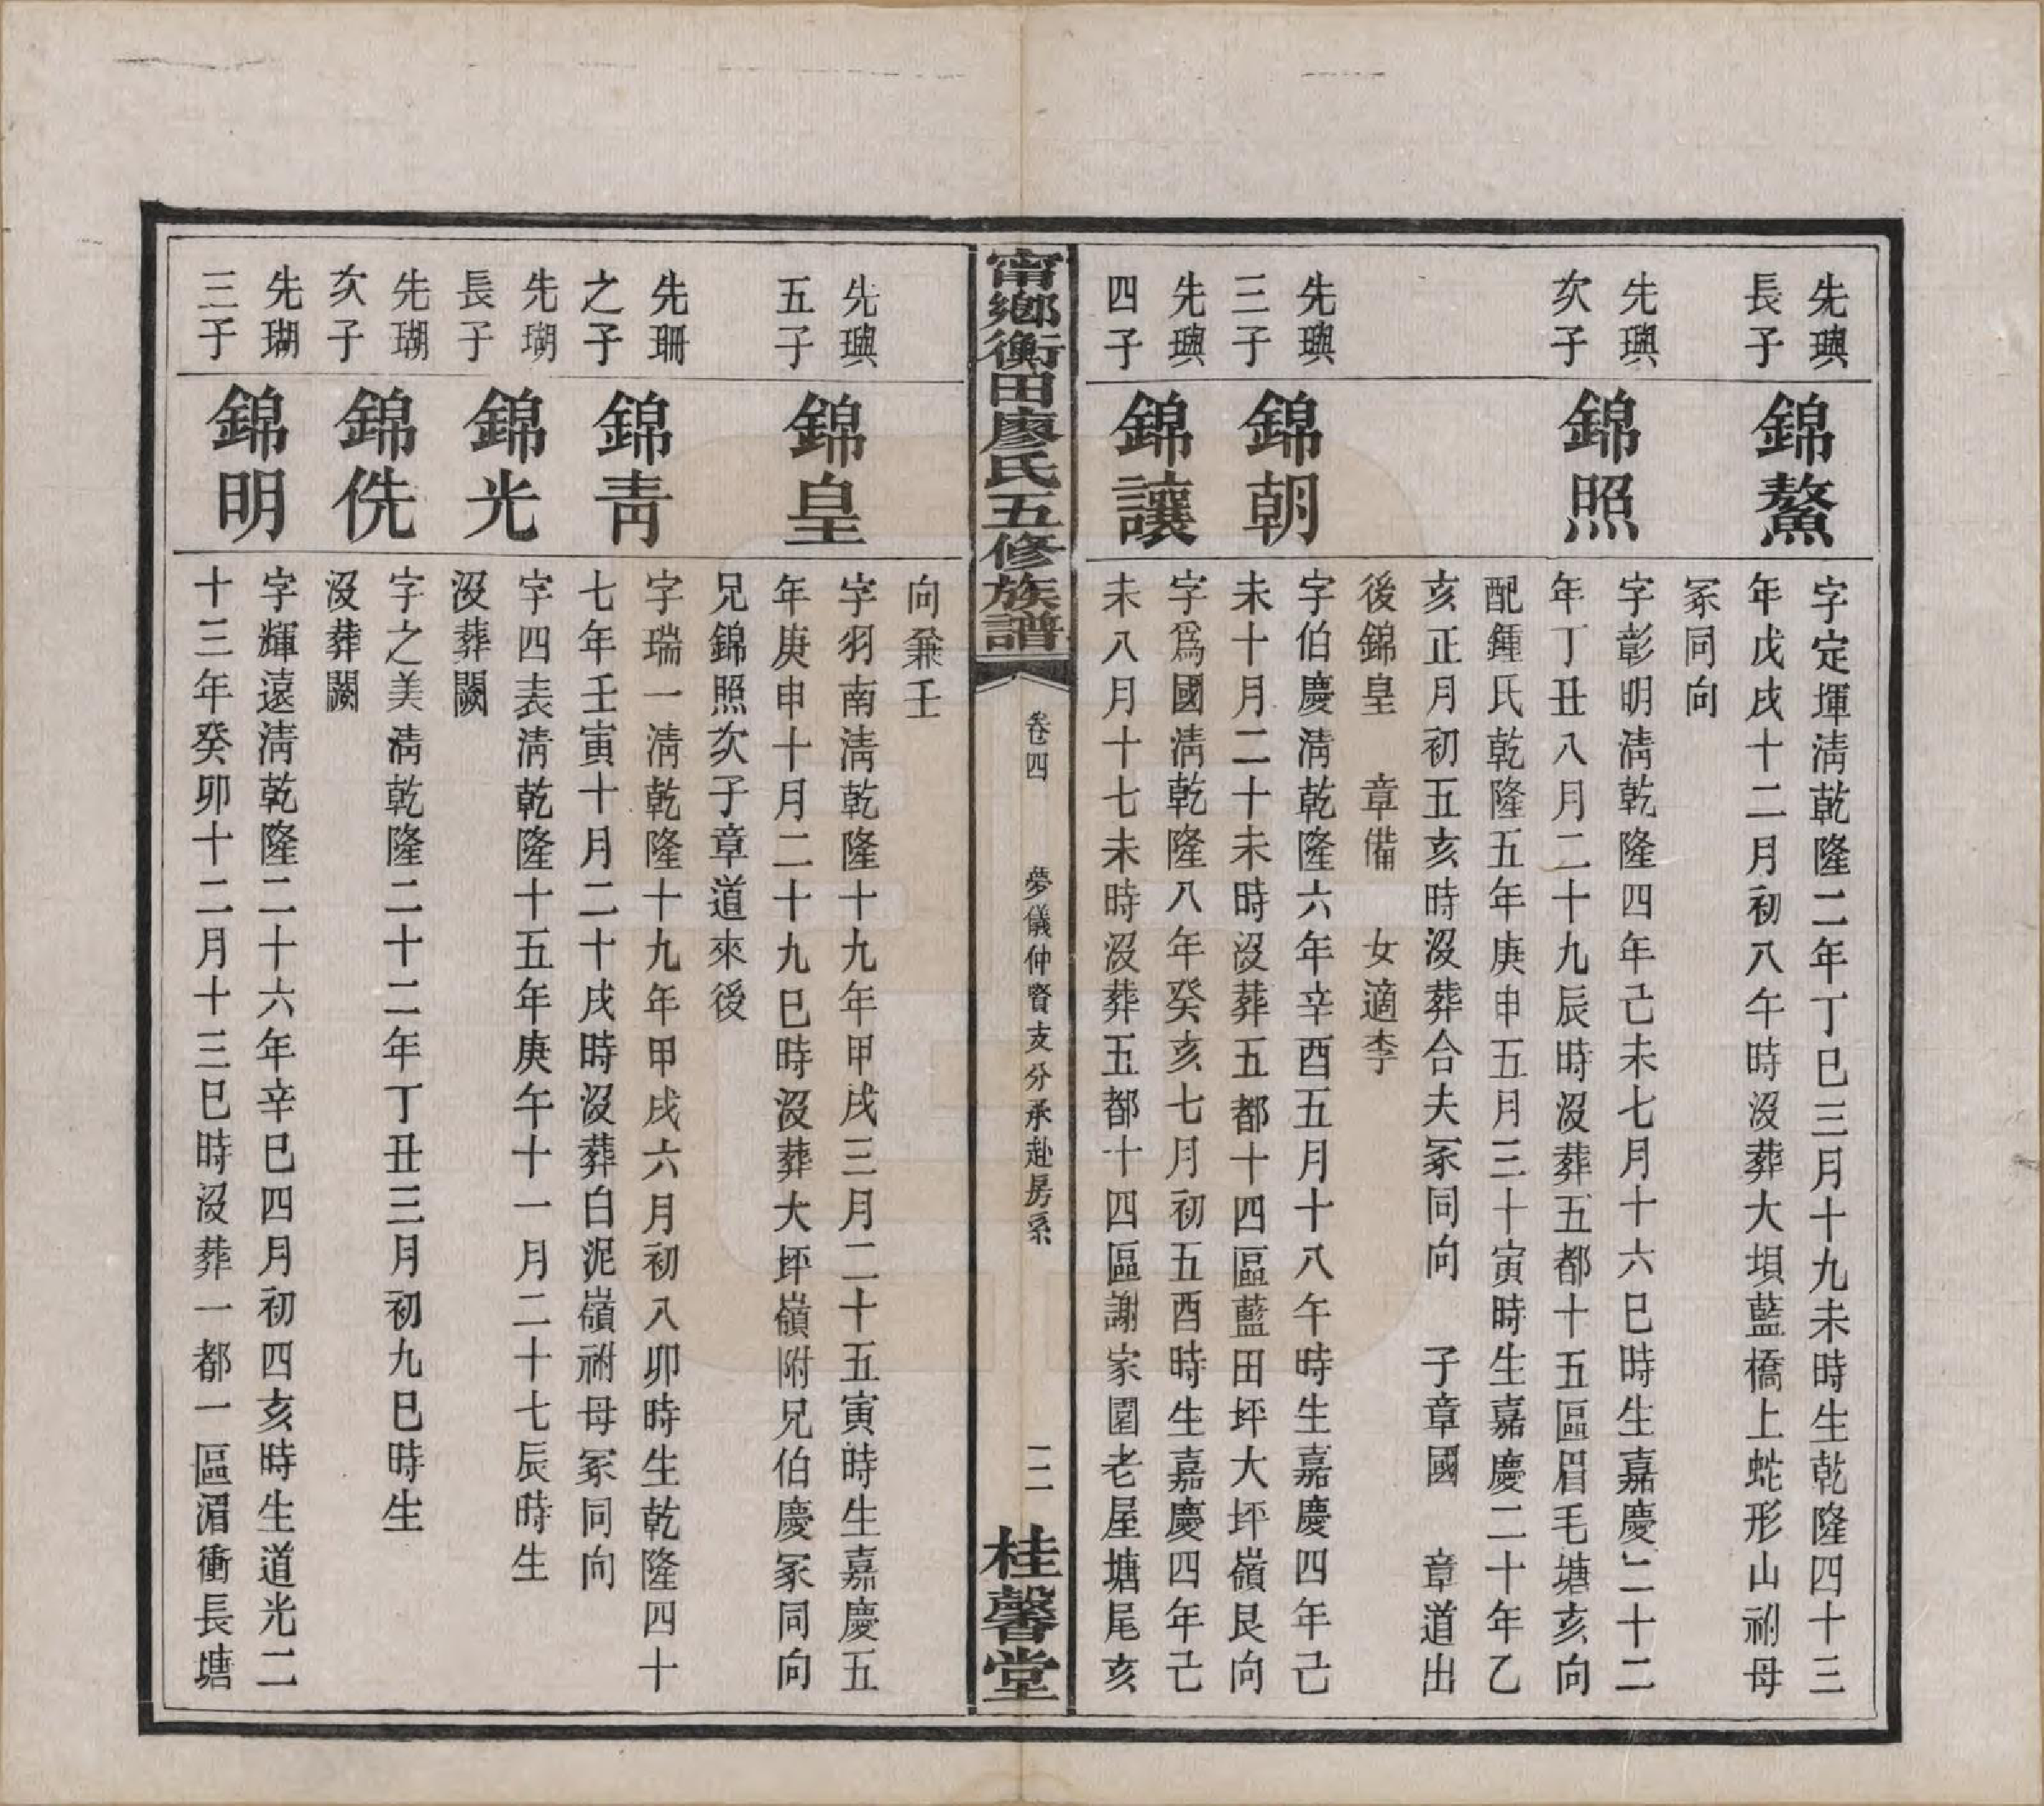 先璵
長子
錦鰲
字定墿淸乾隆二年丁巳三月十九未時生乾隆四十三
年戊戌十二月初八午時沒葬大垻藍橋上蛇形山祔母
冢同向
先璵
次子
錦照
字彰明淸乾隆四年己未七月十六巳時生嘉慶二十二
年丁丑八月二十九辰時沒葬五都十五區眉毛塘亥向
配鍾氏乾隆五年庚申五月三十寅時生嘉慶二十年乙
亥正月初五亥時沒葬合夫冢同向　子章國　章道出
後錦皇　章備　女適李
先璵
三子
錦朝
字伯慶淸乾隆六年辛酉五月十八午時生嘉慶四年己
未十月二十未時沒葬五都十四區藍田坪大坪嶺艮向
先璵
四子
錦讓
字爲國淸乾隆八年癸亥七月初五酉時生嘉慶四年己
未八月十七未時沒葬五都十四區謝家園老屋塘尾亥
甯鄉衡田廖氏五修族譜
卷四
夢儀仲賢支分承赴房系
二二
桂馨堂
向兼壬
先璵
五子
錦皇
字羽南淸乾隆十九年甲戌三月二十五寅時生嘉慶五
年庚申十月二十九巳時沒葬大坪嶺附兄伯慶冢同向
兄錦照次子章道來後
先珊
之子
錦靑
字瑞一淸乾隆十九年甲戌六月初八卯時生乾隆四十
七年壬寅十月二十戌時沒葬白泥嶺祔母冢同向
先瑚
長子
錦光
字四表淸乾隆十五年庚午十一月二十七辰時生
沒葬闕
先瑚
次子
錦侁
字之美淸乾隆二十二年丁丑三月初九巳時生
沒葬闕
先瑚
三子
錦明
字輝遠淸乾隆二十六年辛巳四月初四亥時生道光二
十三年癸卯十二月十三巳時沒葬一都一區湄衝長塘